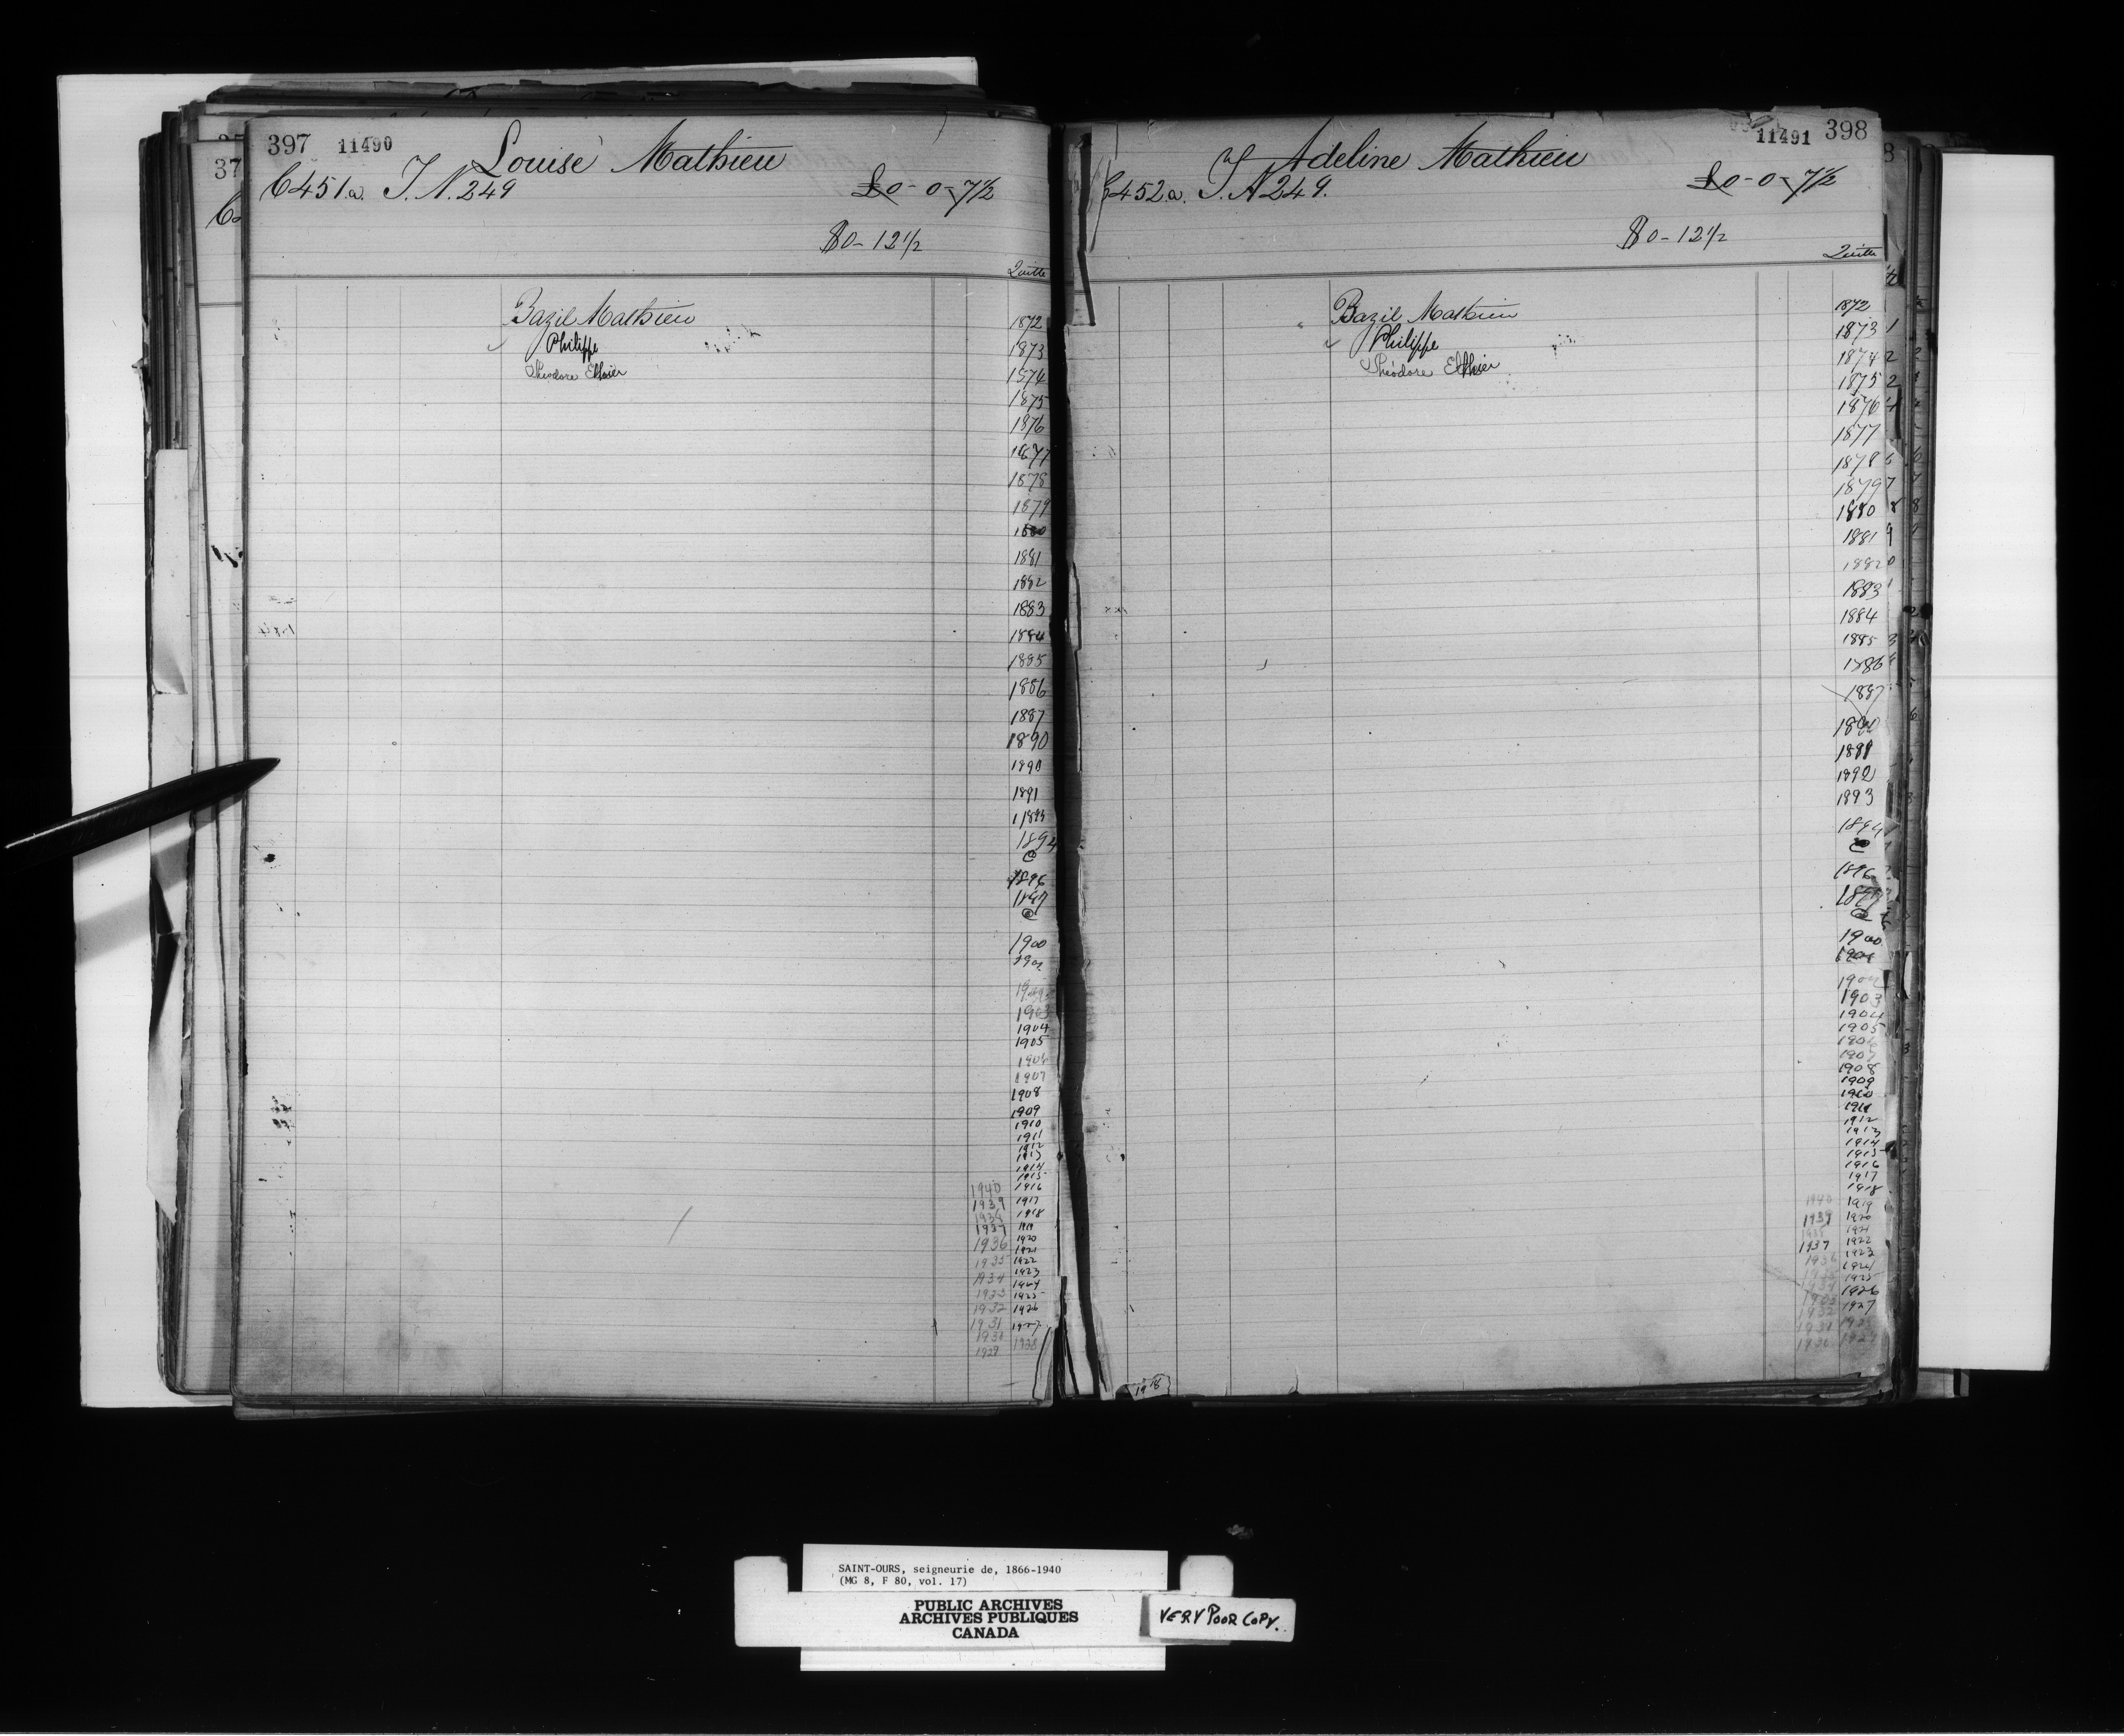 397 11490 Louise Mathieu
C451.a. T. N. 249 £0-0-7½
$0-12½
Quitte
Bazil Mathieu 1872
Philippe 1873
Théodore Ethier 1874
1875
1876
1877
1878
1879
1880
1881
1882
1883
1884
1885
1886
1887
1890
1890
1891
1894
1896
1897
1900
1903
1904
1905
1906
1907
1908
1909
1910
1911
1912
1913
1914
1915
1940 1916
1939 1917
1938 1918
1937 1919
1936 1920
1921
1935 1922
1934 1923
1924
1933 1925
1932 1926
1931 1927
1930 1928
1929
11491 398
Adeline Mathieu
C452.a. T. N 249. £0-0-7½
$0-12½
Quitte
Bazil Mathieu 1872
Philippe 1873
Théodore Ethier 1874
1875
1876
1877
1878
1879
1880
1881
1882
1883
1884
1885
1886
1887
1890
1891
1892
1893
1894
1896
1897
1900
1903
1904
1905
1906
1907
1908
1909
1910
1911
1912
1913
1914
1915
1916
1917
1918
1940 1919
1939 1920
1921
1937 1922
1936 1923
1924
1925
1926
1932 1927
1931
1930 1929
1918
SAINT-OURS, seigneurie de, 1866-1940
(MG 8, F 80, vol. 17)
PUBLIC ARCHIVES
ARCHIVES PUBLIQUES
CANADA
VERY POOR COPY.